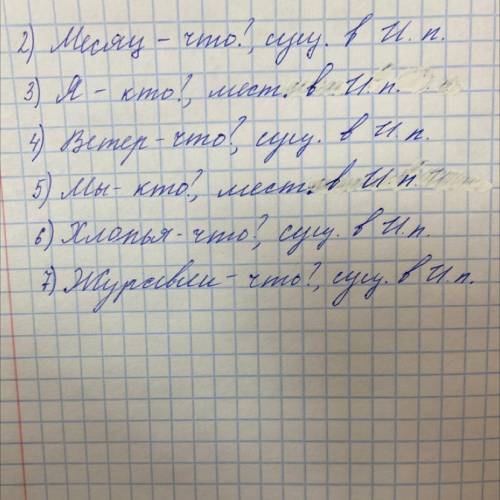 2) Месяц - что?, сущ. в И. п.
3) Я - кто?, мест. в И. п.
4) Ветер - что?, сущ. в И. п.
5) Мы - кто?, мест. в И. п.
6) Хлопья - что?, сущ. в И. п.
7) Журавли - что?, сущ. в И. п.